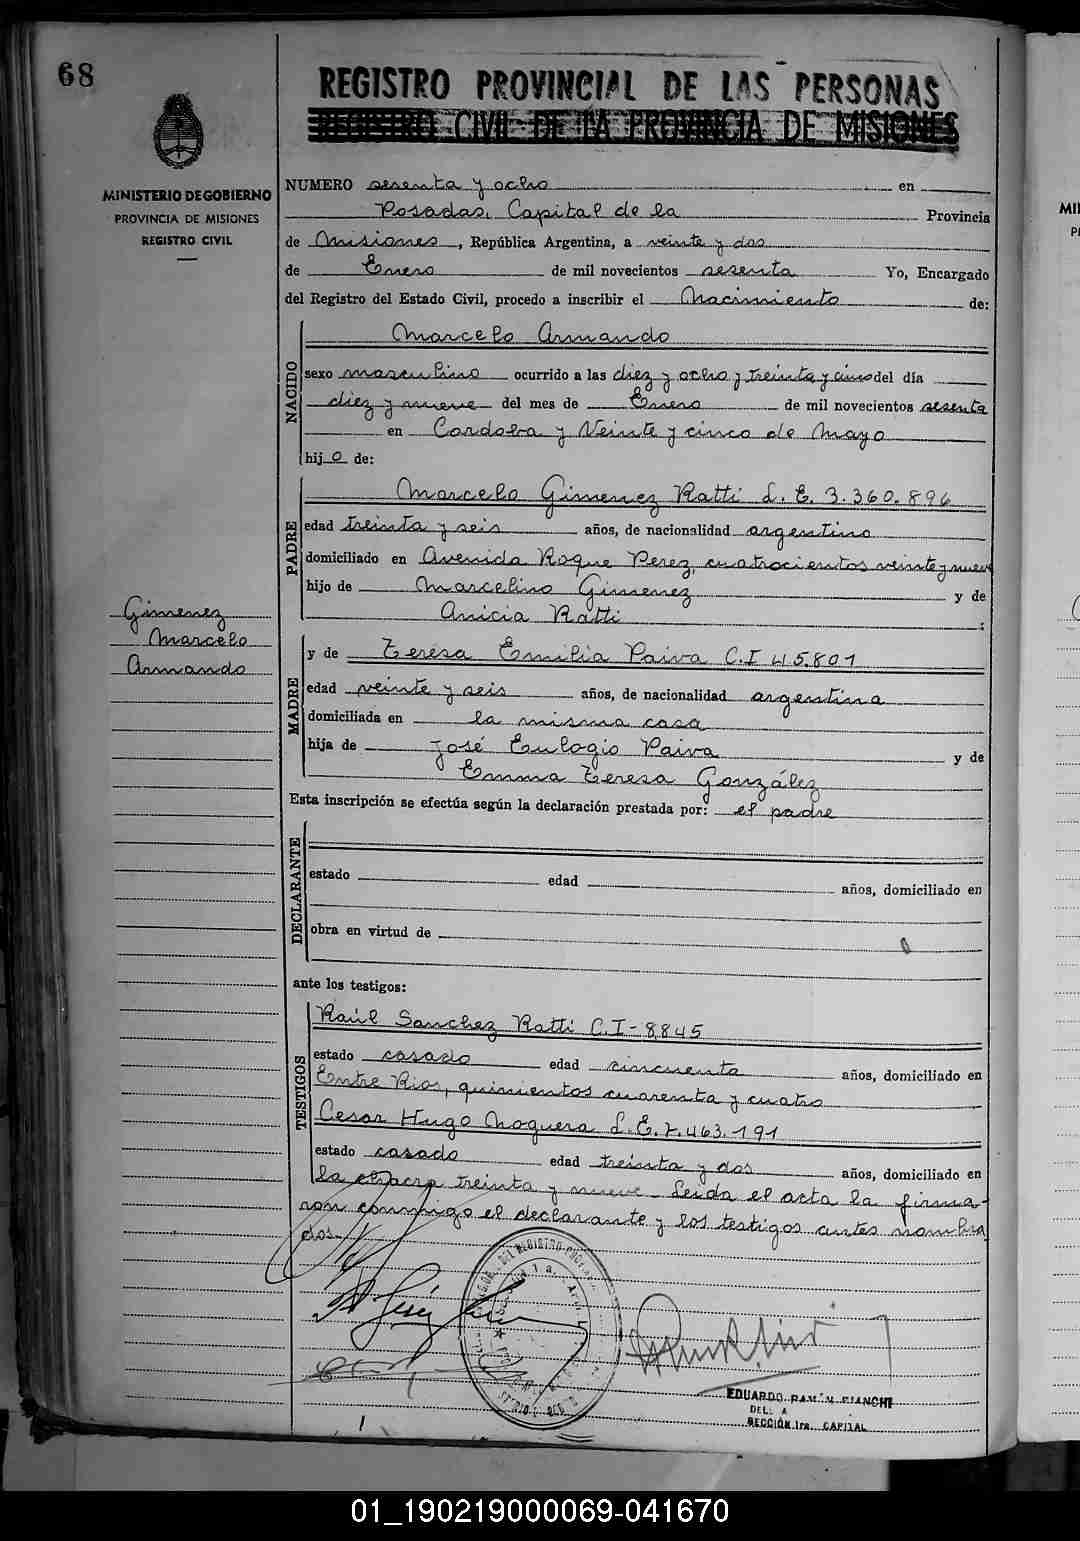 68
REGISTRO PROVINCIAL DE LAS PERSONAS
REGISTRO CIVIL DE LA PROVINCIA DE MISIONES
MINISTERIO DE GOBIERNO
PROVINCIA DE MISIONES
REGISTRO CIVIL
NUMERO sesenta y ocho en
Posadas, Capital de la Provincia
de Misiones, República Argentina, a veinte y dos
de Enero de mil novecientos sesenta Yo, Encargado
del Registro del Estado Civil, procedo a inscribir el Nacimiento de:
NACIDO
Marcelo Armando
sexo masculino ocurrido a las diez y ocho y treinta y cinco del día
diez y nueve del mes de Enero de mil novecientos sesenta
en Cordoba y Veinte y cinco de Mayo
hijo de:
PADRE
Marcelo Gimenez Ratti L. E. 3.360.896
edad treinta y seis años, de nacionalidad argentino
domiciliado en Avenida Roque Perez, cuatrocientos veinte y nueve
hijo de Marcelino Gimenez y de
Anicia Ratti :
Gimenez
Marcelo
Armando
MADRE
y de Teresa Emilia Paiva C.I 45.801
edad veinte y seis años, de nacionalidad argentina
domiciliada en la misma casa
hija de José Eulogio Paiva y de
Emma Teresa González
Esta inscripción se efectúa según la declaración prestada por: el padre
DECLARANTE
estado edad años, domiciliado en
obra en virtud de
ante los testigos:
TESTIGOS
Raúl Sanchez Ratti C.I-8845
estado casado edad cincuenta años, domiciliado en
Entre Rios, quinientos cuarenta y cuatro
Cesar Hugo Noguera L.E.7.463.191
estado casado edad treinta y dos años, domiciliado en
la chacra treinta y nueve - Leida el acta la firma-
ron conmigo el declarante y los testigos antes nombra
dos.-
EDUARDO RAMÓN BIANCHI
SECCIÓN 1ra. CAPITAL
01_190219000069-041670